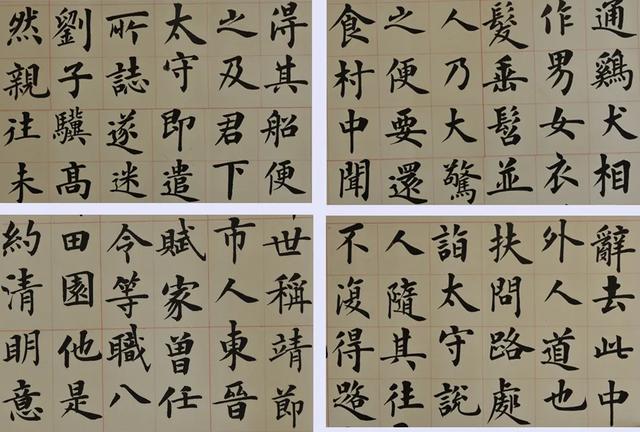 通鷄犬相
作男女衣
髮垂髫並
人乃大驚
之便要還
食村中聞
辭去此中
外人道也
扶問路處
詣太守說
人隨其往
不復得路
得其船便
之及君下
太守即遣
所誌遂迷
劉子驥高
然親往未
世稱靖節
市人東晉
賦家曾任
令等職八
田園他是
約清明意